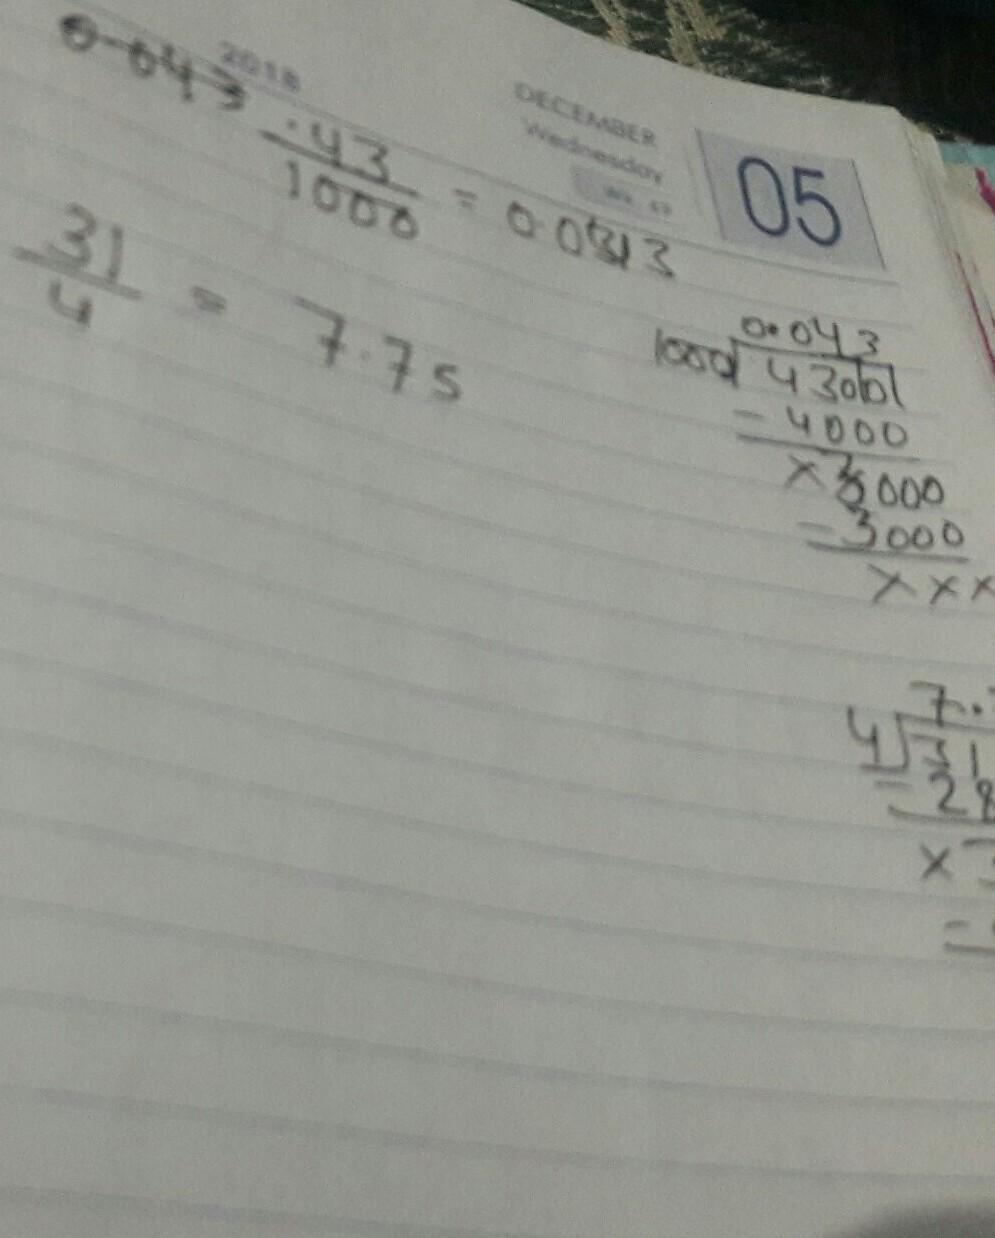 0-043
2018
DECEMBER
Wednesday
05
.43
1000 = 0.0
31
4 = 7.75
0.043
1000 4300
- 4000
x 3000
- 3000
x x x
7.
4 31
- 28
x
-